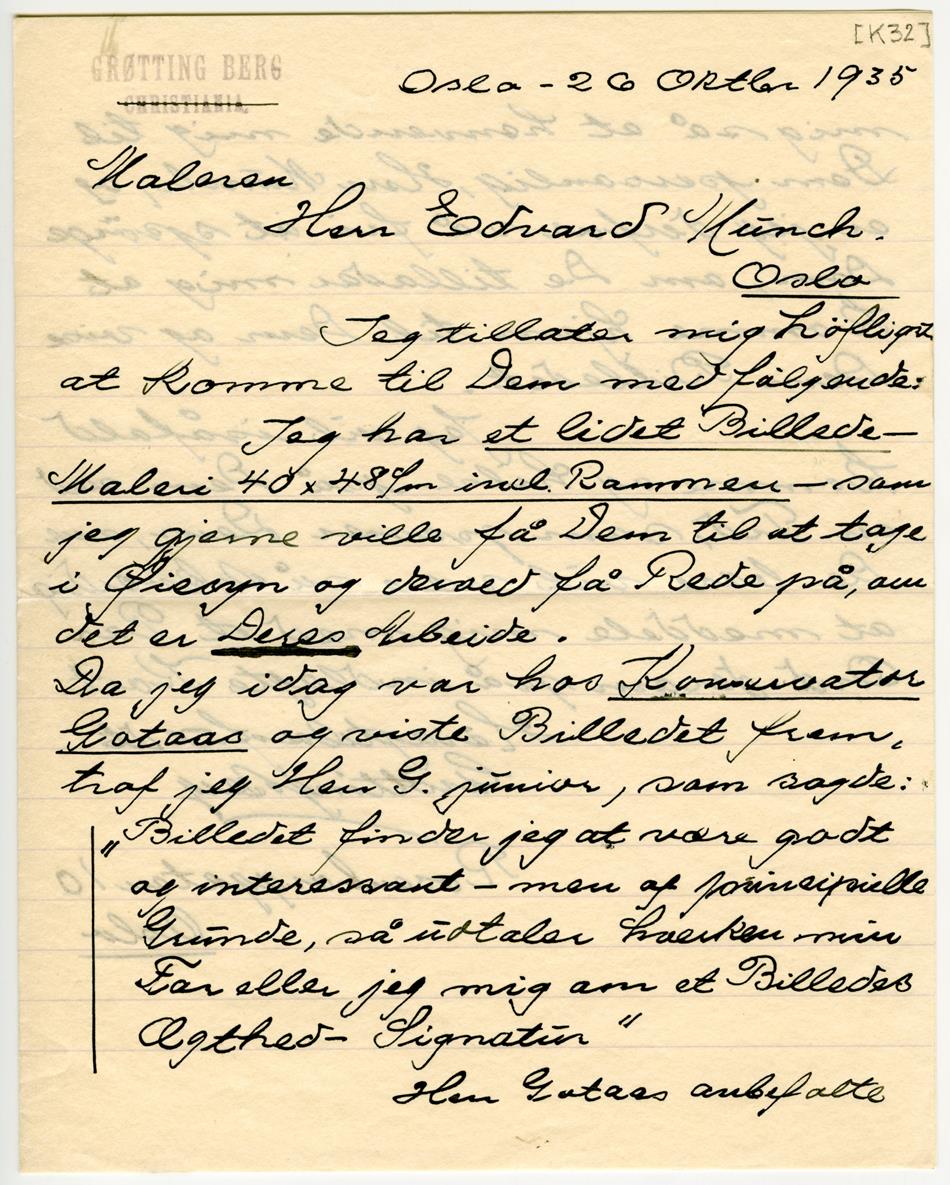 [K32]
GRØTTING BERG
CHRISTIANIA.
Oslo - 26 Oktbr 1935
Maleren
Herr Edvard Münch.
Oslo
Jeg tillater mig höfligst
at komme til Dem med følgende:
Jeg har et lidet Billede-
Maleri 40 x 48 c/m incl. Rammen - som
jeg gjerne ville få Dem til at tage
i Øiesyn og derved få Rede på, om
det er Deres Arbeide.
Da jeg idag var hos Konservator
Gotaas og viste Billedet frem,
traf jeg Herr G. júnior, som sagde:
"Billedet finder jeg at være godt
og interessant - men af principielle
Grúnde, så údtaler hverken min
Far eller jeg mig om et Billedes
Ægthed - Signatúr"
Herr Gotaas anbefalte